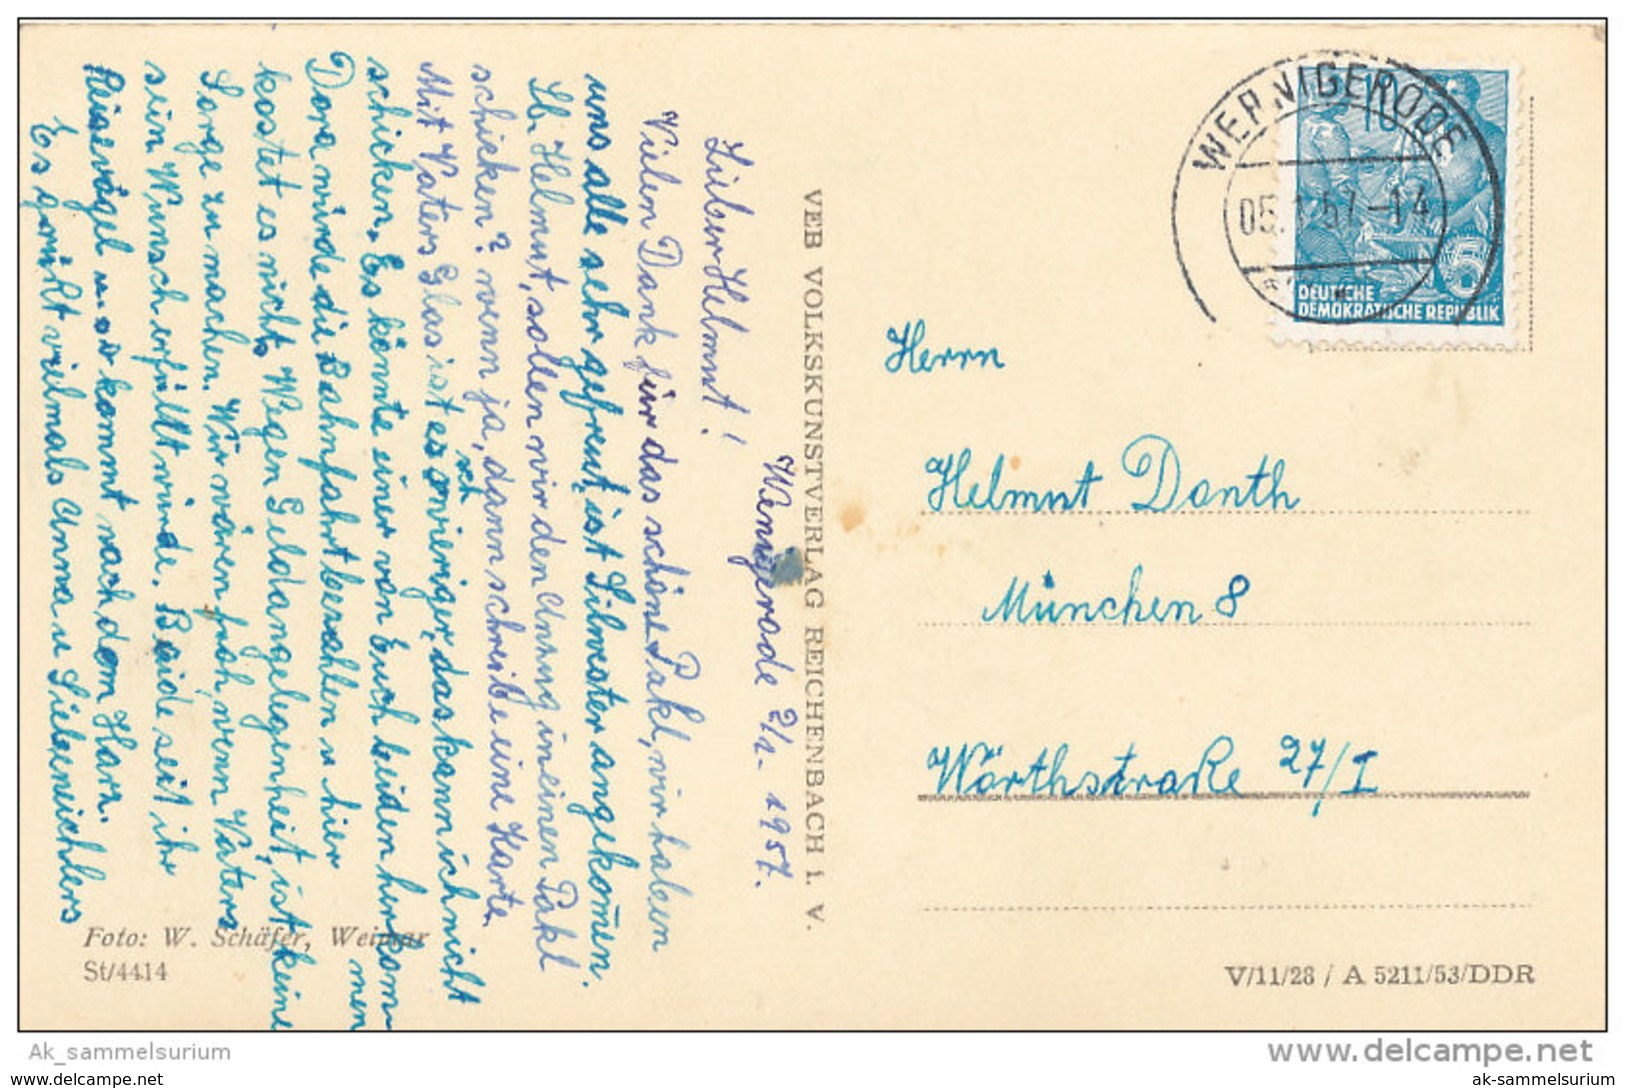 Wernigerode 2/1. 1957.
Lieber Helmut!
Vielen Dank für das schöne Pakl, wir haben
uns alle sehr gefreut, ist Silvester angekom̄en.
Lb. Helmut, sollen wir den Anzug in einen Pakl
schicken? wenn ja, dann schreibe eine Karte
Mit Vaters Glas ist es schwieriger, das kann ich nicht
schicken. Es könnte einer von Euch beiden herkom
men
Dora würde die Bahnfahrt bezahlen u hier
kostet es nichts. Wegen Geldangelegenheit, ist keine
Sorge zu machen. Wir wären froh, wenn Vaters
sein Wunsch erfüllt würde. Beide seit ihr
Reisevögel u. so kommt nach dem Harz.
Es grüßt vielmals Anna u Siebeneichlers
Foto: W. Schäfer, Weimar
St/4414
VEB VOLKSKUNSTVERLAG REICHENBACH i. V.
WERNIGERODE
05.1.57-14
10
DEUTSCHE
DEMOKRATISCHE REPUBLIK
Herrn
Helmut Donth
München 8
Wörthstraße 27/I
V/11/28 / A 5211/53/DDR
Ak_sammelsurium
www.delcampe.net
www.player.com
ak-sammelsurium